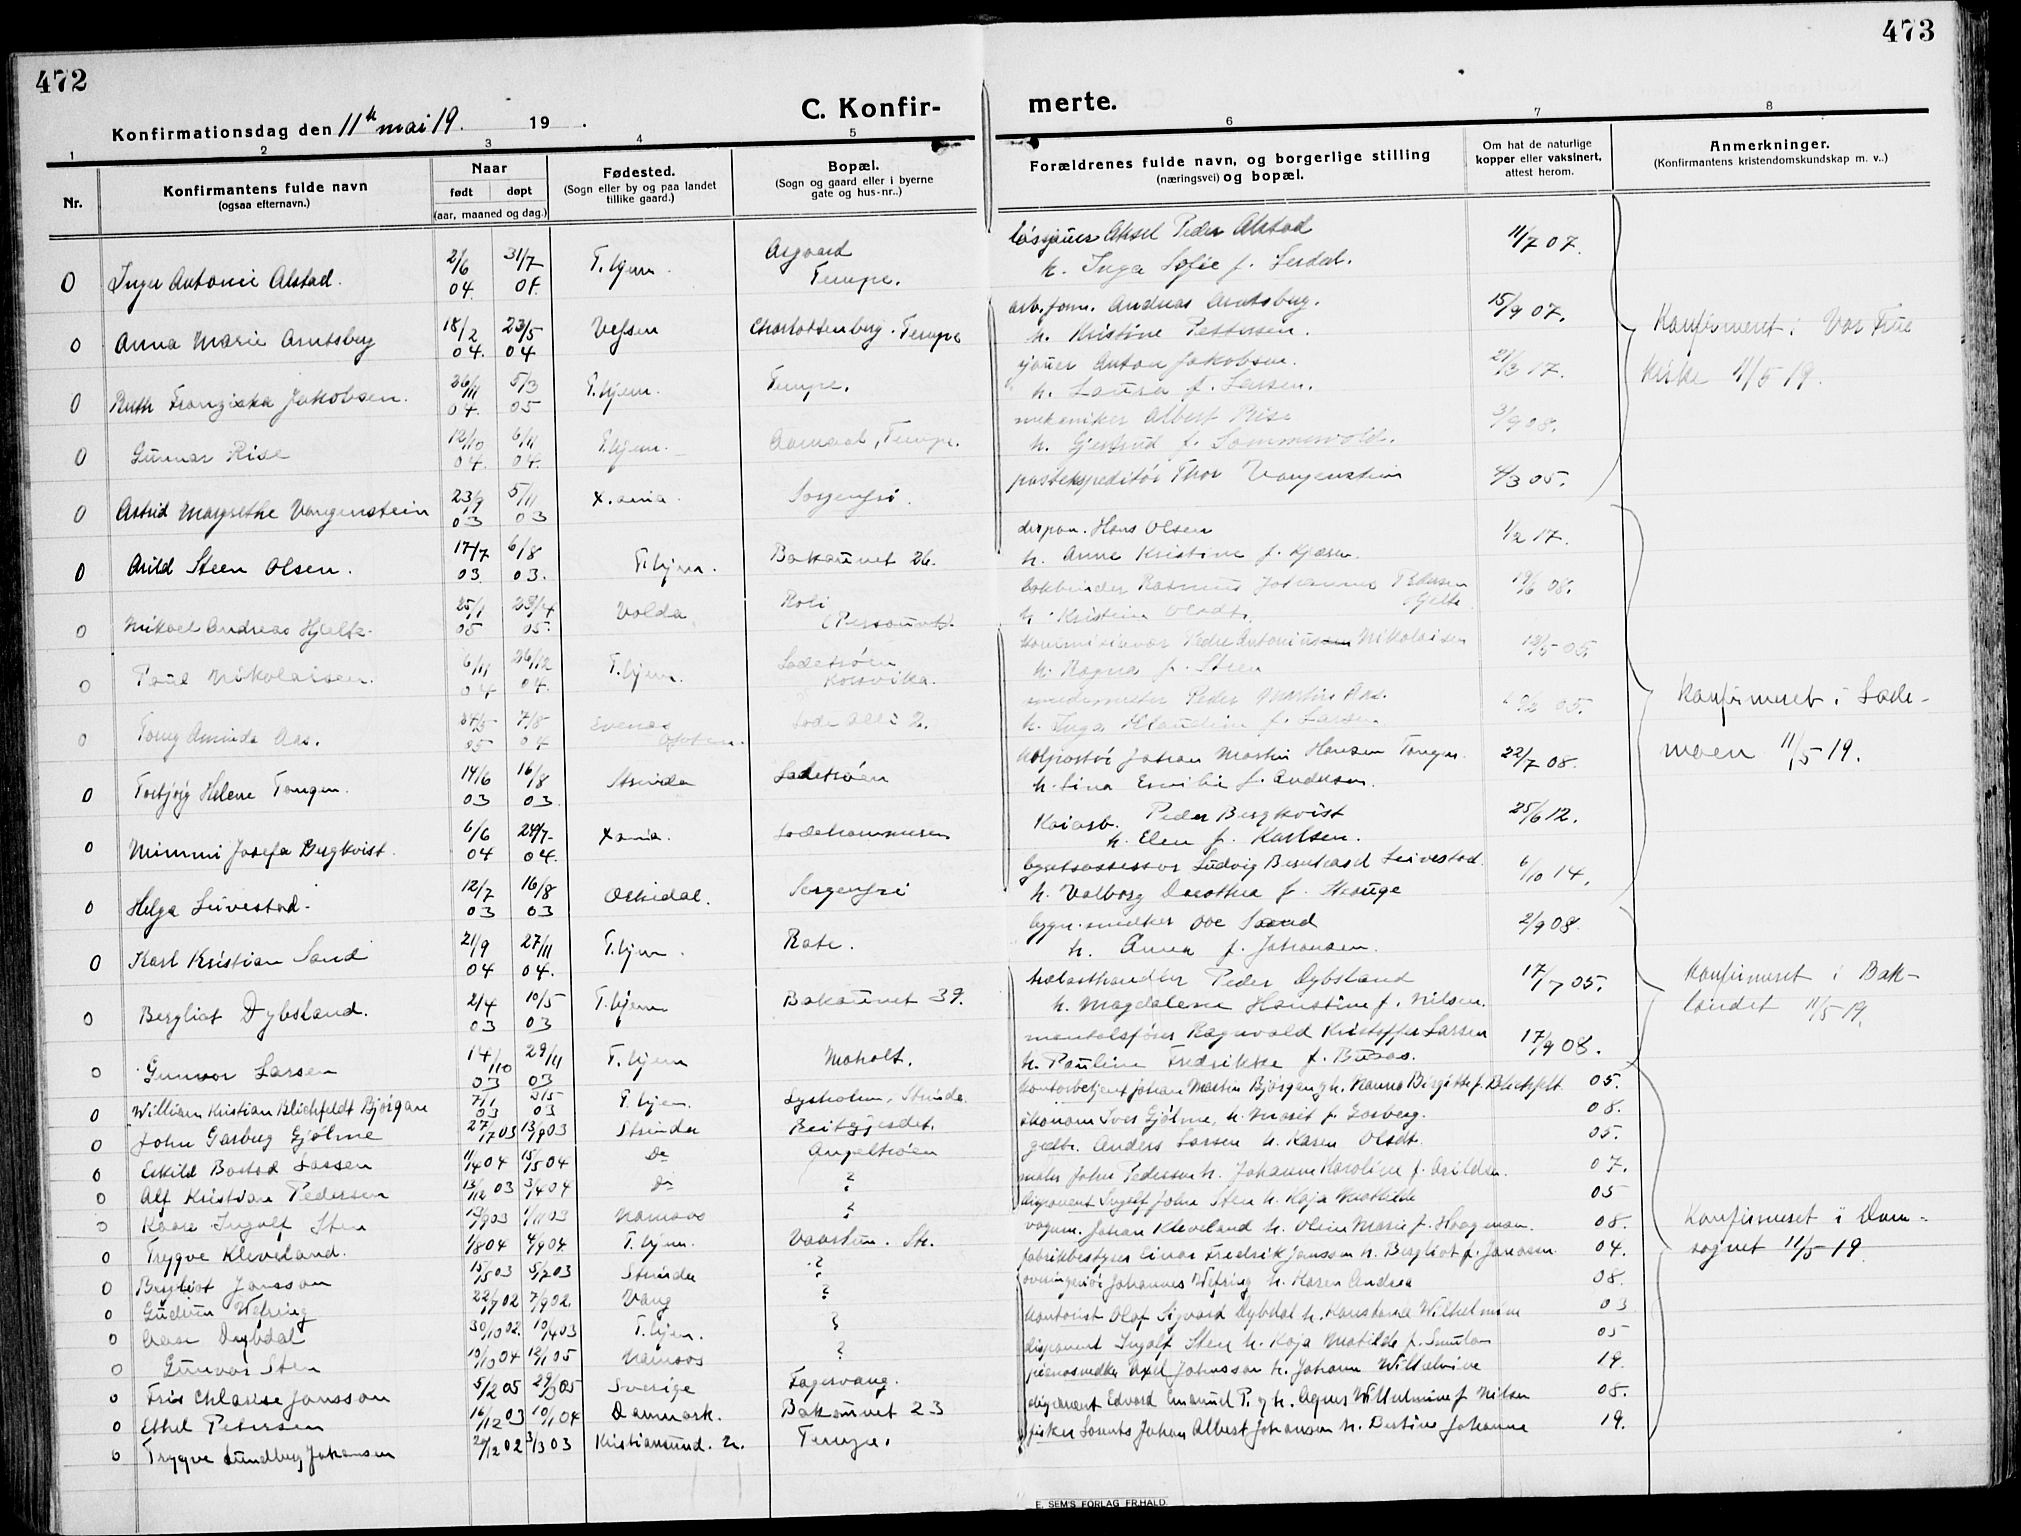 472
473
C. Konfir-
merte.
Konfirmationsdag den 11te mai 19. 19 .
1 2 3 4 5 6 7 8
Nr.
Konfirmantens fulde navn
(ogsaa efternavn.)
Naar
født døpt
(aar, maaned og dag.)
Fødested.
(Sogn eller by og paa landet
tillike gaard.)
Bopæl.
(Sogn og gaard eller i byerne
gate og hus-nr..)
Forældrenes fulde navn, og borgerlige stilling
(næringsvei) og bopæl.
Om hat de naturlige
kopper eller vaksinert,
attest herom.
Anmerkninger.
(Konfirmantens kristendomskundskap m. v..)
0 Inger Antonie Alstad. 2/6 04. 31/7 T.hjem. Asgaard Tempe. Aksel Peder Alstad h. Inga Sofie f. 11/7 07.
0 Anna Marie Arntsberg 18/2 04. 23/5 04 Vefsen Charlottenberg. Tempe arb.form. Andreas Arntsberg. h. Kristine Pettersen. 15/9 07.
0 Ruth Franziska Jakobsen. 26/11 04. 5/3 05 T.hjem. Tempe. sjauer Anton Jakobsen. h. Laura f. Larsen. 21/3 17.
0 Gunnar Rise 12/10 04. 6/11 04. T.hjem. Tempe. mekaniker Albert Rise h. Gjertrud f. Sommervold. 3/9 08.
0 Astrid Margrethe Vangenstein 23/9 03 5/11 03 X.ania. Sorgenfri. postekspeditør Thor Vangenstein 4/3 05.
Konfirmeret i Vor Frue
kirke 11/5 19.
0 Arild Steen Olsen. 17/7 03 6/8 03. T.hjem. Bakaunet 26. dispon. Hans Olsen h. Anne Kristine f. 1/2 17.
0 Mikael Andreas Hjelte. 25/1 05 05. Volda Roli (Persaunet). bokbinder Rasmus Johannes Pedersen Hjelte h. Kristine Olsdt. 19/6 08.
0 Paul Nikolaisen. 6/11 04 26/12 04. T.hjem. Ladetrøen Korsvika. Peder Antoniussen Nikolaisen h. Ragna f. Steen 05.
0 Tomy Aminda Aas. 05 7/8 04 Evenes Lade alle 2. smedemester Peder Martin Aas. h. Inga Klaudine f. Larsen 05.
0 Torbjørg Helene Tangen. 14/6 03 16/8 03. Strinda Ladetrøen Johan Martin Hansen Tangen h. Lina Emilie f. Andersen. 22/7 08.
0 Mimmi Josefa Bergkvist. 6/6 04 24/7 04. Xania. Ladehammeren Kaiarb. Peder Bergkvist h. Elen f. Karlsen. 25/6 12.
0 Helga Leivestad. 12/7 03 16/8 03 Orkidal. Sorgenfri Ludvig Bernhard Leivestad. h. Valborg Dorothea f. Hauge 6/10 14.
Konfirmeret i Lade-
moen 11/5 19.
0 Karl Kristian Sand 21/9 04 27/11 04. T.hjem. Rate. bygn.snedker Ove Sand h. Anna f. Johansen. 2/9 08.
0 Bergliot Dybsland. 2/4 03 10/5 03 T.hjem Bakaunet 39. Peder Dybsland h. Magdalene Hanstine f. Nilsen. 17/7 05.
0 Gunvor Larsen 14/10 03 29/11 03 T.hjem Moholt. Ragnvald Kristoffer Larsen h. Pauline Fredrikke f. Buaas. 17/9 08.
Konfirmeret i Bak-
landet 11/5 19.
0 William Kristian Blichfeldt Bjørgan 7/1 03 3/5 03 T.hjem. Lysholm, Strinda. kontorbetjent Johan Martin Bjørgan og h. Hanna Birgitte f. Blichfelt 05.
0 John Garberg Gjølme 27/7 03 13/9 03 Strinda Beitgjerdet. økonom Iver Gjølme, h. Marit f. Garberg. 08.
0 Eskild Bostad Larsen 11/4 04 15/5 04 Do Angeltrøen grdbr. Anders Larsen h. Karen Olsdt. 05.
0 Alf Kristian Pedersen 13/12 03 3/4 04 Do ? maler John Pedersen h. Johanne Karoline f. Arildsen 07.
0 Kaare Ingolf Sten 13/9 03 1/11 03 Namsos ? disponent Ingolf John Sten h. Kaja Mathilde 05
0 Trygve Kleveland. 1/8 04 4/9 04. T.hjem. Vaartun. Str. vognm. Johan Kleveland h. Oline Marie f. Haagensen. 08.
0 Bergliot Jansson 15/5 03 5/7 03 Strinda ? fabrikbestyrer Einar Fredrik Jansson h. Bergliot f. Janosen 04.
0 Gudrun Wefring 22/7 02 7/9 02. Vang ? overingeniør Johannes Wefring h. Karen Andrea 08.
0 Aase Dybdal 30/10 02. 10/4 03 T.hjem. ? kontorist Olaf Sigvard Dybdal h. Konstanse Wilhelmine 03
0 Gunvor Sten 10/10 04 12/1 05 Namsos ? disponent Ingolf Sten h. Kaja Matilde f. 05
0 Iris Clarise Jonsson 5/2 05 29/3 05 Sverige Fagervang. pianosnedker Axel Johnsson h. Johanne Wilhelmine 19.
0 Ethel Petersen 16/12 03 10/1 04 Danmark. Bakaunet 23 disponent Edvard Emanuel P. og h. Agnes Wilhelmine f. Nilsen 08.
0 Trygve Lundberg Johansen 20/12 02 3/3 03 Kristiansund. N. Tempe. fisker Lorents Johan Albert Johansen h. Bertine Johanne 19.
Konfirmeret i Dom-
sognet 11/5 19.
E. SEM'S FORLAG FR.HALD.